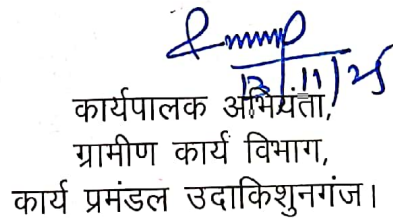 13/11/25
कार्यपालक अभियंता,
ग्रामीण कार्य विभाग,
कार्य प्रमंडल उदाकिशुनगंज।